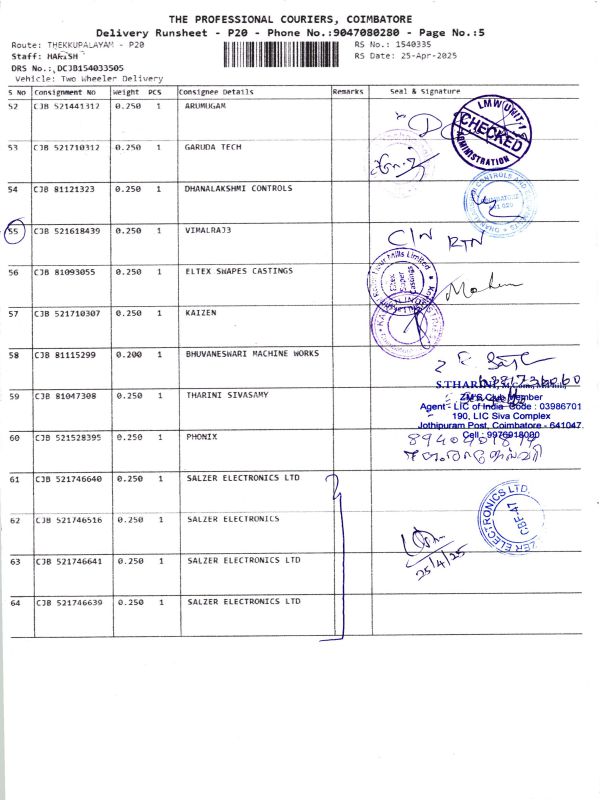 THE PROFESSIONAL COURIERS, COIMBATORE
Delivery Runsheet - P20 - Phone No.:9047080280 - Page No.:5
Route: THEKKUPALAYAM - P20
RS No.: 1540335
Staff: HARISH
RS Date: 25-Apr-2025
DRS No.: DCJB154033505
Vehicle: Two Wheeler Delivery
S No Consignment No Weight PCS Consignee Details Remarks Seal & Signature
52 CJB 521441312 0.250 1 ARUMUGAM
LMW UNIT-1 CHECKED ADMINISTRATION
53 CJB 521710312 0.250 1 GARUDA TECH
54 CJB 81121323 0.250 1 DHANALAKSHMI CONTROLS
55 CJB 521618439 0.250 1 VIMALRAJ3
C/N RTN
56 CJB 81093055 0.250 1 ELTEX SHAPES CASTINGS
Eltek Super Castings
57 CJB 521710307 0.250 1 KAIZEN
58 CJB 81115299 0.200 1 BHUVANESWARI MACHINE WORKS
59 CJB 81047308 0.250 1 THARINI SIVASAMY
S.THARINI,
ZM'S Club Member
Agent - LIC of India Code : 03986701
190, LIC Siva Complex
Jothipuram Post, Coimbatore - 641047
Cell : 9976918080
60 CJB 521528395 0.250 1 PHONIX
61 CJB 521746640 0.250 1 SALZER ELECTRONICS LTD
62 CJB 521746516 0.250 1 SALZER ELECTRONICS
ZER ELECTRONICS LTD. CBE-47
63 CJB 521746641 0.250 1 SALZER ELECTRONICS LTD
25/4/25
64 CJB 521746639 0.250 1 SALZER ELECTRONICS LTD